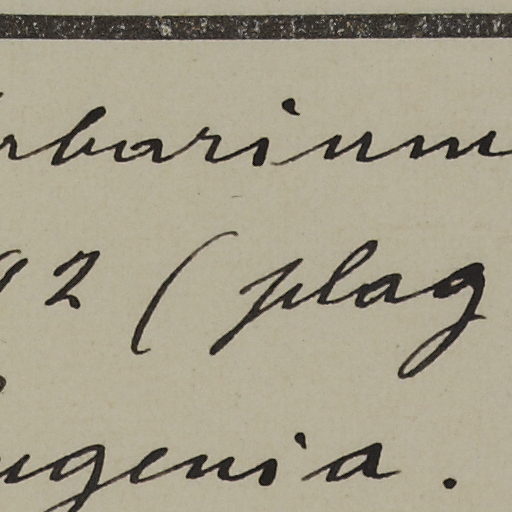 rbarium
92 ( plag
ugenia.